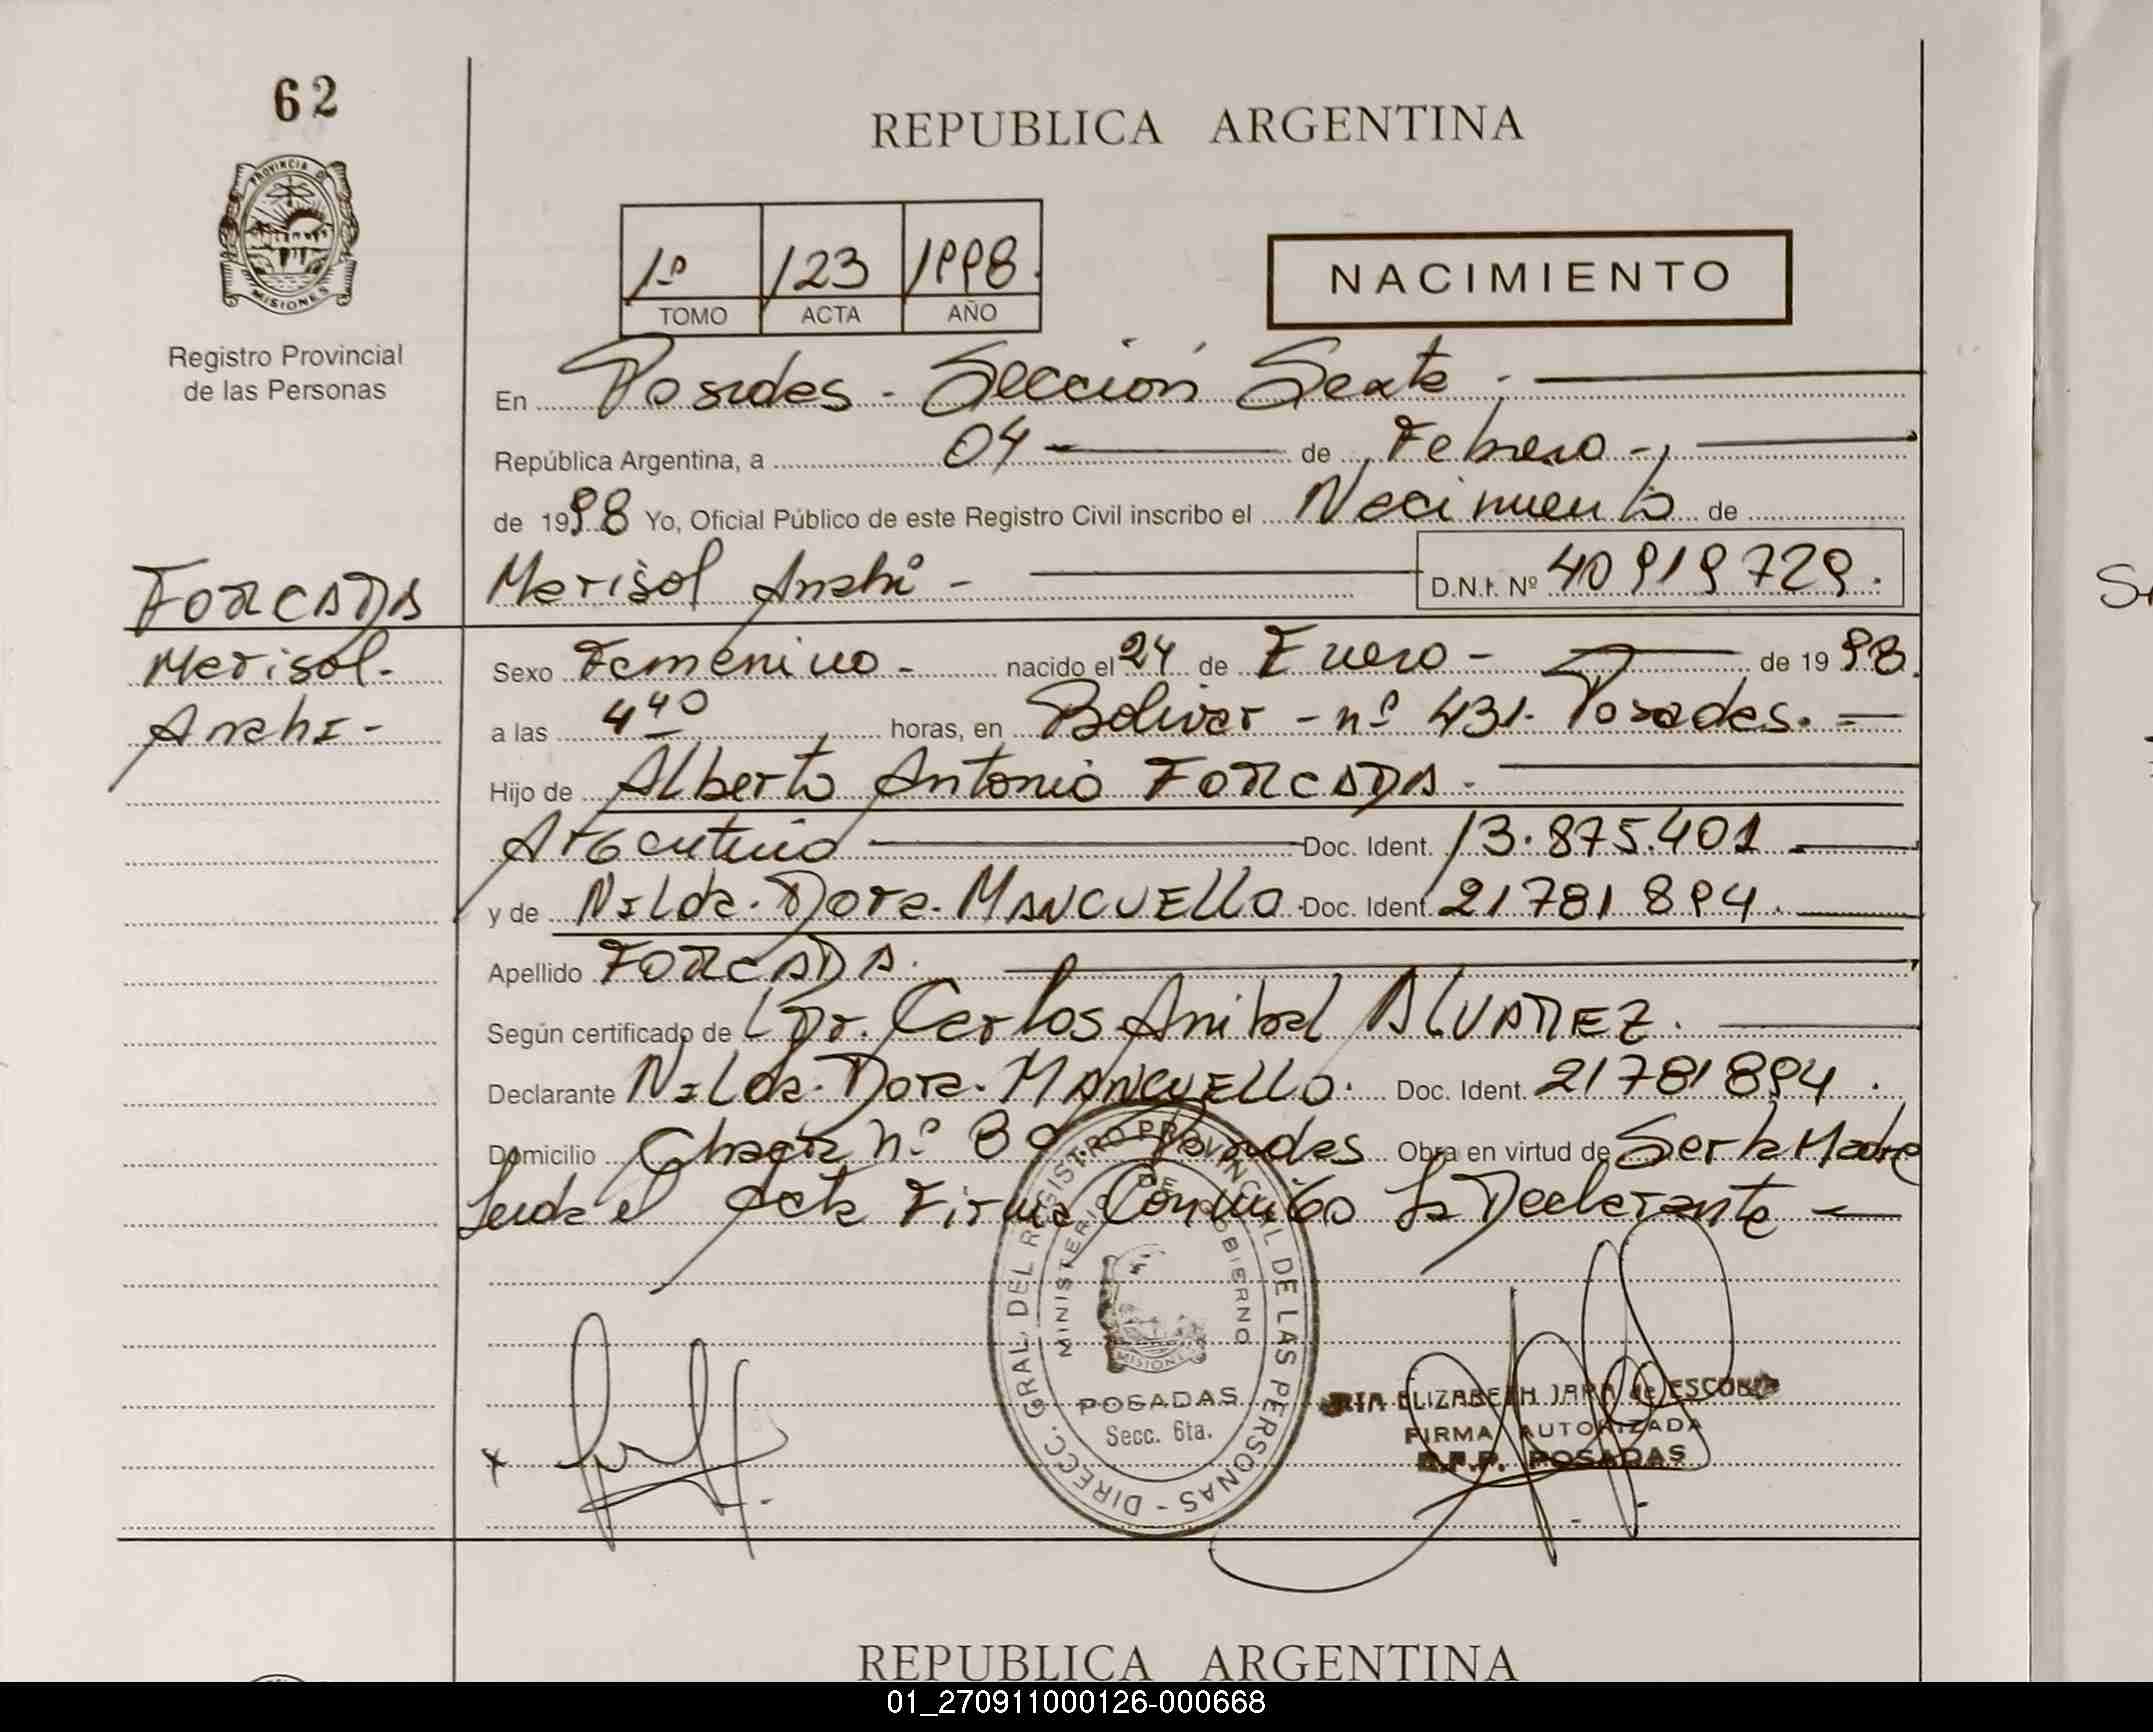 62
REPUBLICA ARGENTINA
PROVINCIA D
MISIONES
1º 123 1998.
TOMO ACTA AÑO
NACIMIENTO
Registro Provincial
de las Personas
En Posadas - Sección Sexta -
República Argentina, a 04 de Febrero -
de 1998 Yo, Oficial Público de este Registro Civil inscribo el Nacimiento de
FORCADA
Marisol Anahí - D.N.I. Nº 40919729.
Marisol.
Anahí -
Sexo Femenino - nacido el 24 de Enero - de 1998.
a las 4 40 horas, en Bolivar - nº 431. Posadas. -
Hijo de Alberto Antonio FORCADA.
Argentino Doc. Ident. 13.875.401
y de Nilda. Dora. MANCUELLO Doc. Ident. 21781894.
Apellido FORCADA.
Según certificado de Dr. Carlos Anibal ALVAREZ.
Declarante Nilda. Dora. MANCUELLO. Doc. Ident. 21781894.
Domicilio Chacra nº 80 Posadas Obra en virtud de Ser la Madre
Leida el Acta Firma Conmigo La Declarante -
DIRECC. GRAL. DEL REGISTRO PROVINCIAL DE LAS PERSONAS -
MINISTERIO DE GOBIERNO
MISIONES
POSADAS
Secc. 6ta.
ELIZABETH JARA de
FIRMA AUTORIZADA
POSADAS
REPUBLICA ARGENTINA
01_270911000126-000668